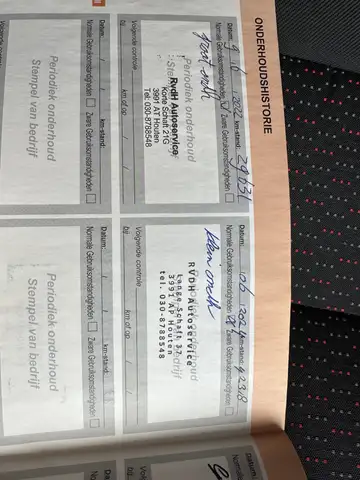 ONDERHOUDSHISTORIE
Datum: 9 / 6 / 2022 km-stand: 29131
Normale Gebruiksomstandigheden Zware Gebruiksomstandigheden
groot onderh
Periodiek onderhoud
RvdH Autoservice
Korte Schaft 21G
3991 AT Houten
Tel: 030-8768548
Volgende controle
bij: km of op: / /
Datum: / / km-stand:
Normale Gebruiksomstandigheden Zware Gebruiksomstandigheden
Periodiek onderhoud
Stempel van bedrijf
Datum: km-stand:
Normale Gebruiksomstandigheden Zware Gebruiksomstandigheden
klein onderh
RVDH Autoservice
3991 AP Houten
tel. 030-8788548
Volgende controle
bij: km of op: / /
Datum: / / km-stand:
Normale Gebruiksomstandigheden Zware Gebruiksomstandigheden
Periodiek onderhoud
Stempel van bedrijf